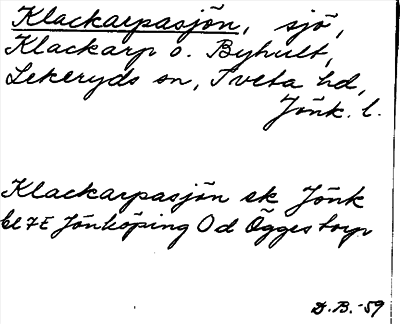 Klackarpasjön, sjö,
Klackarp o. Byhult,
Lekeryds sn, Tveta hd,
Jönk. l.
Klackarpasjön ek Jönk
bl 7E Jönköping Od Öggestorp
D.B.-59